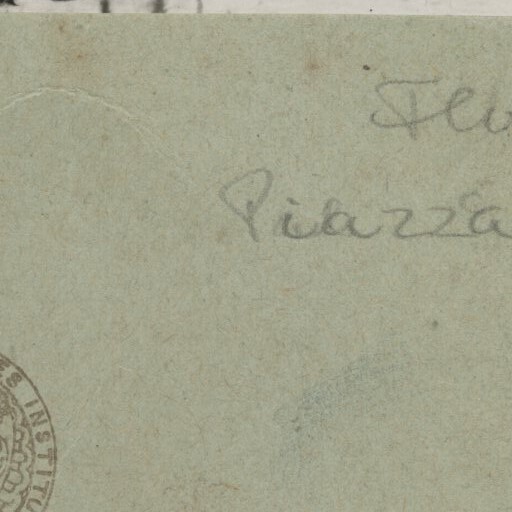 Flo
Piazza
ES INSTITU